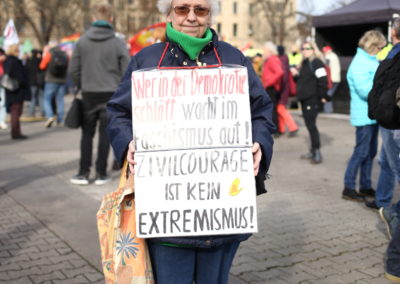 Wer in der Demokratie
schläft wacht im
Faschismus auf!
ZIVILCOURAGE
IST KEIN
EXTREMISMUS!